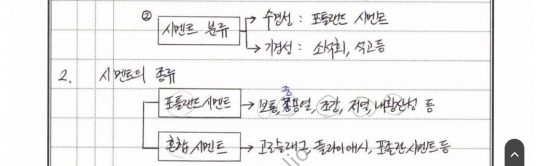 ② 시멘트 분류 → 수경성 : 포틀랜드 시멘트
→ 기경성 : 소석회, 석고 등
2. 시멘트의 종류
포틀랜드시멘트 → 보통, 중용열, 조강, 저열, 내황산성 등
혼합시멘트 → 고로슬래그, 플라이애시, 포졸란시멘트 등